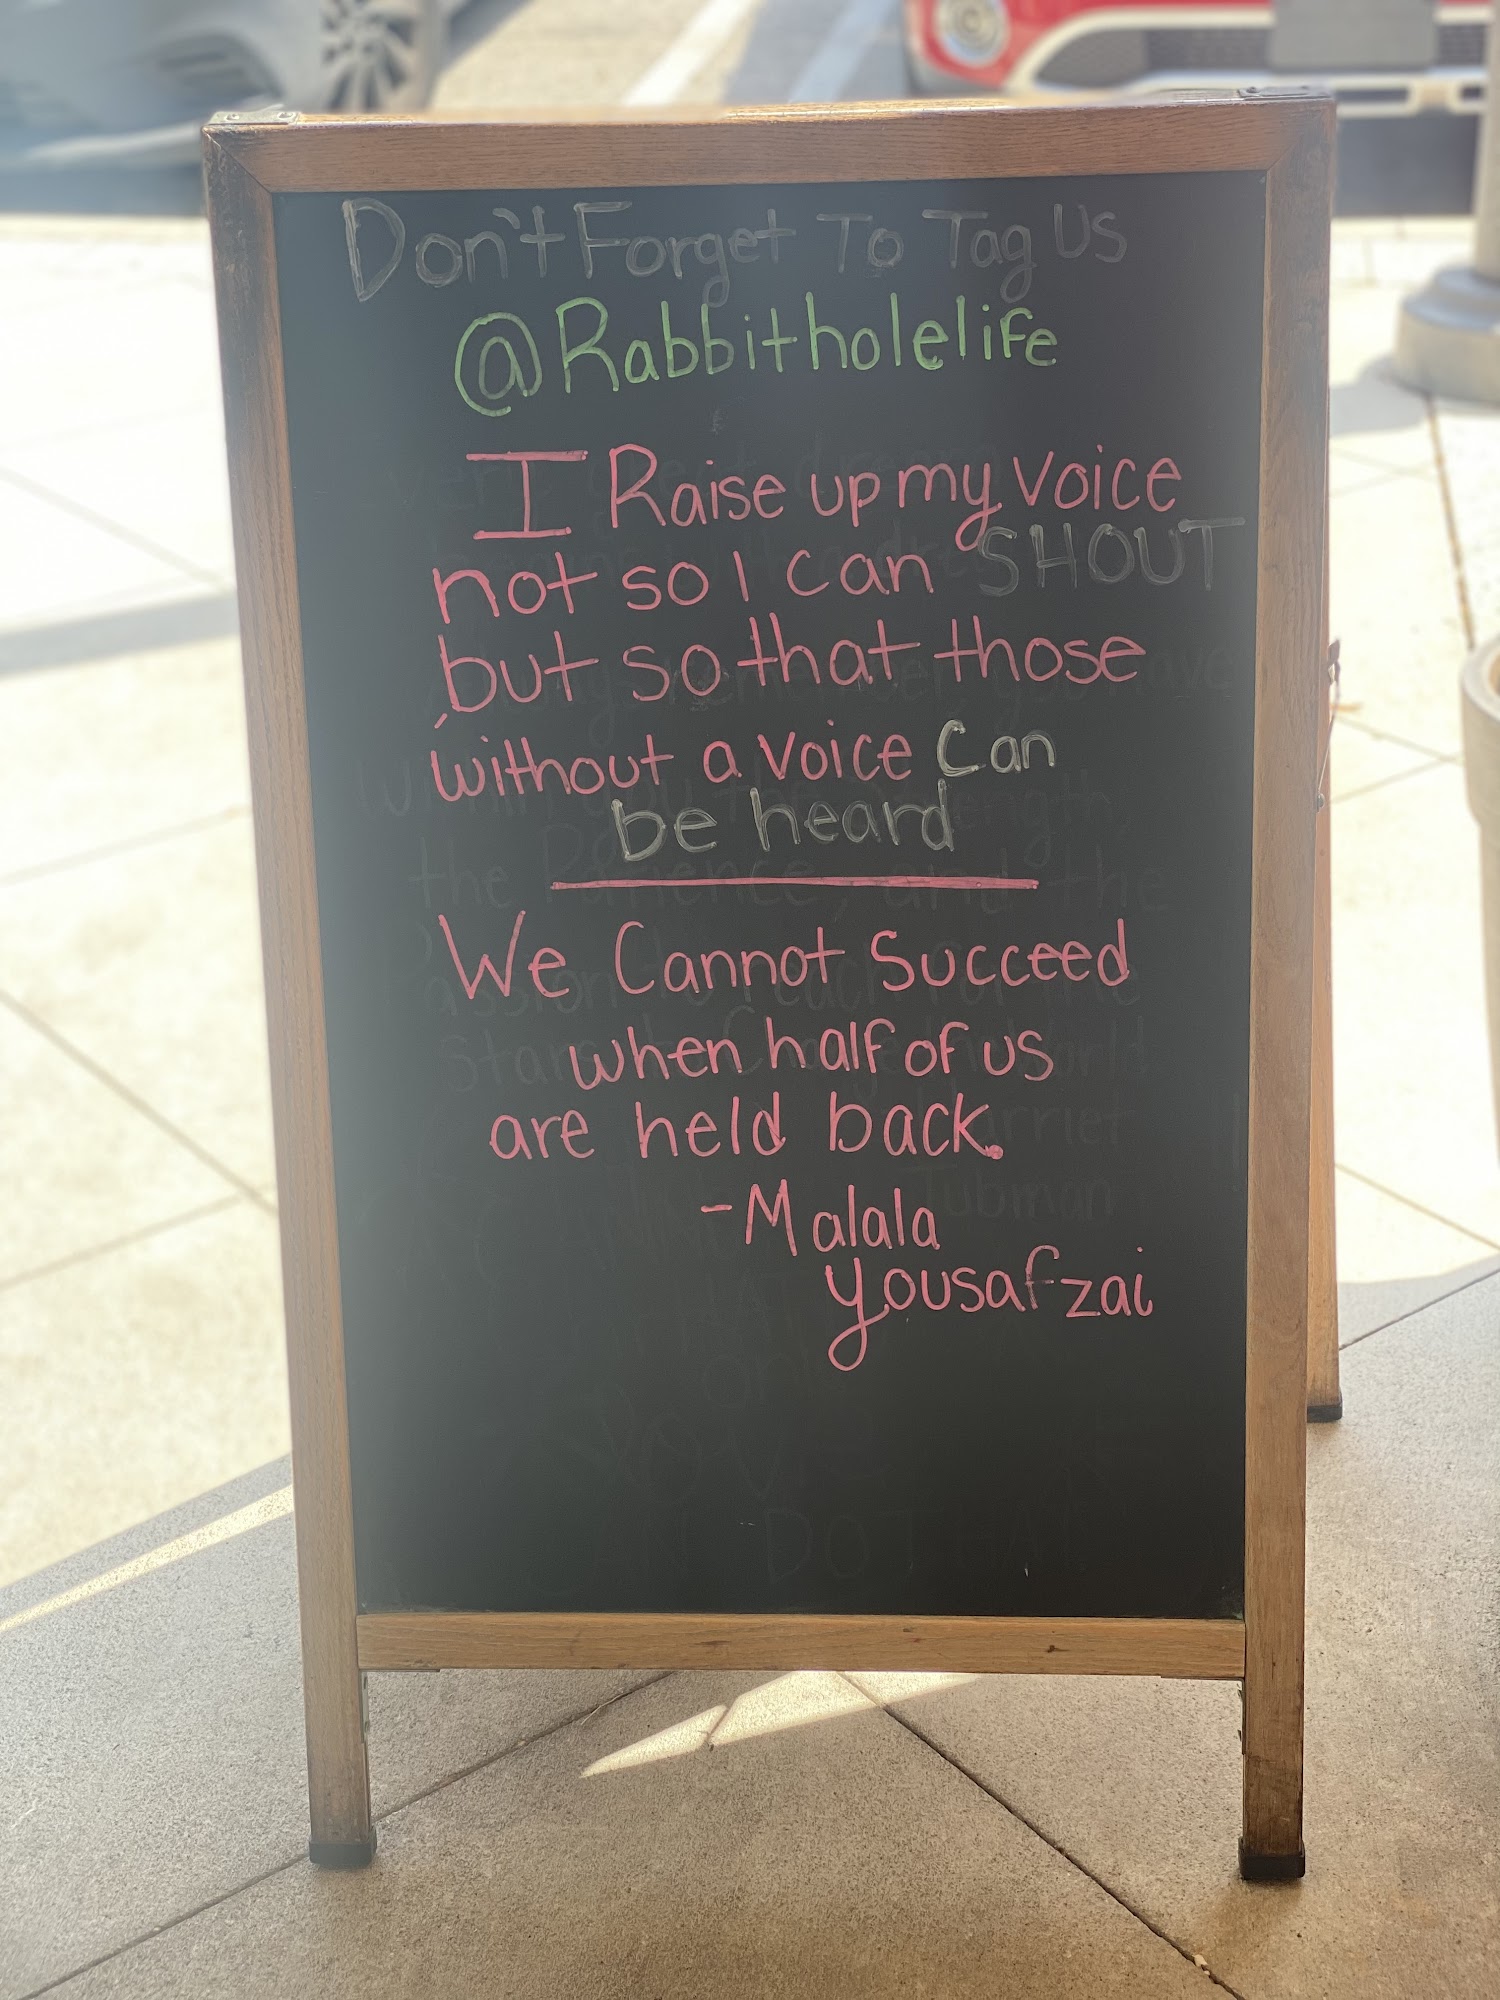 Don't Forget To Tag Us
@Rabbitholelife
I Raise up my voice
not so I can SHOUT
but so that those
without a voice Can
be heard
We Cannot Succeed
when half of us
are held back.
-Malala
Yousafzai